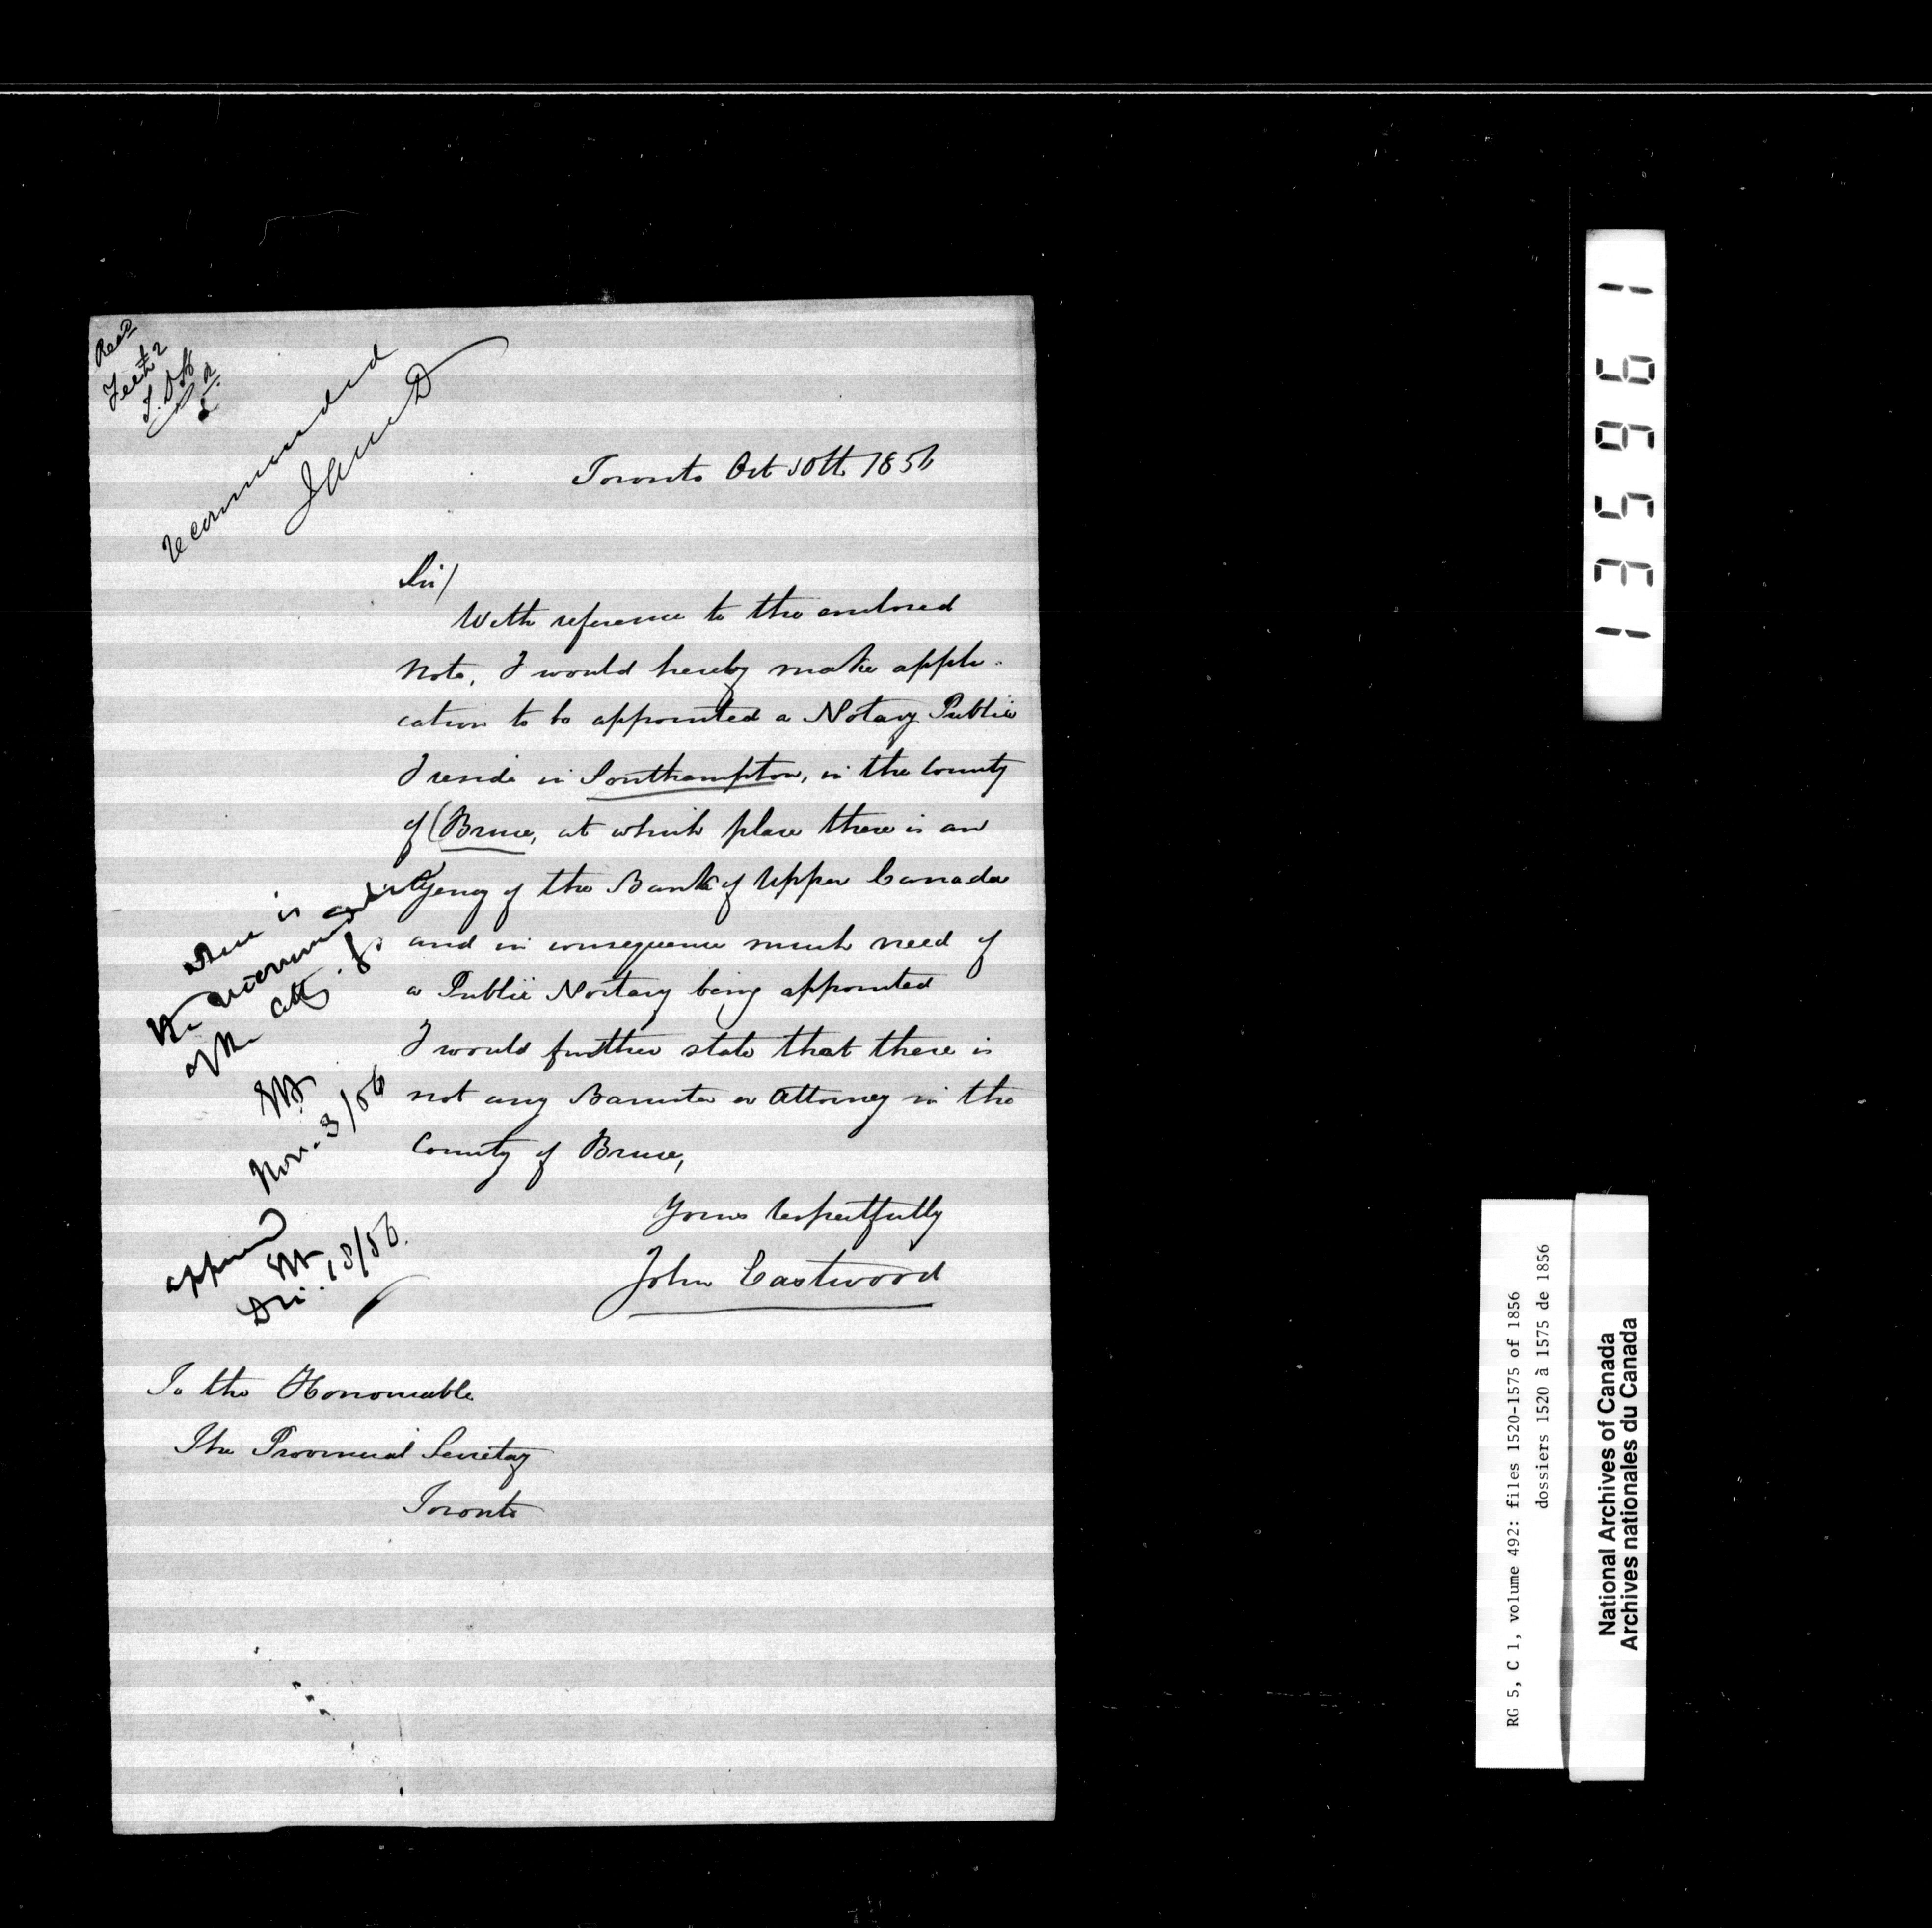 Recd
recommended
JAMcD
Toronto Oct 10th 1856
Sir/
With reference to the enclosed
Note, I would hereby make appli-
cation to be appointed a Notary Public
I reside in Southampton, in the County
of Bruce, at which place there is an
Agency of the Bank of Upper Canada
and in consequence much need of
a Public Nortary being appointed
I would further state that there is
not any Barrister or Attorney in the
County of Bruce,
Yours respectfully
John Eastwood
is
the recommendation
of the Atty.
Nov. 3/56
approved
Dec. 18/56.
To the Honourable
The Provincial Secretary
Toronto
135961
RG 5, C 1, volume 492: files 1520-1575 of 1856
dossiers 1520 à 1575 de 1856
National Archives of Canada
Archives nationales du Canada